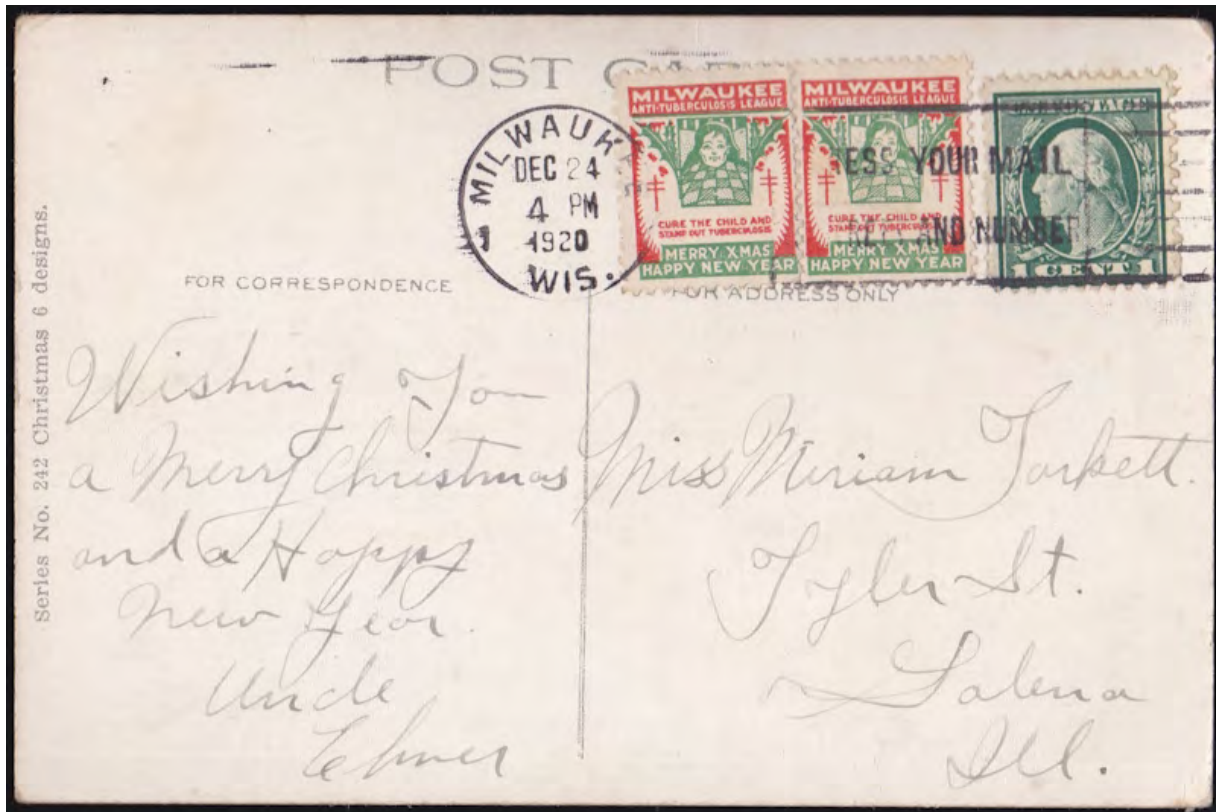 POST CARD
MILWAUKEE
DEC 24
4 PM
1920
WIS.
1
MILWAUKEE
ANTI-TUBERCULOSIS LEAGUE
CURE THE CHILD AND
STAMP OUT TUBERCULOSIS
MERRY XMAS
HAPPY NEW YEAR
MILWAUKEE
ANTI-TUBERCULOSIS LEAGUE
CURE THE CHILD AND
STAMP OUT TUBERCULOSIS
MERRY XMAS
HAPPY NEW YEAR
RESS YOUR MAIL
AND NUMBER
1 CENT 1
FOR CORRESPONDENCE
FOR ADDRESS ONLY
Series No. 242 Christmas 6 designs.
Wishing You
a Merry Christmas
and a Happy
New Year.
Uncle
Elmer
Miss Miriam
Tyler St.
Galena
Ill.